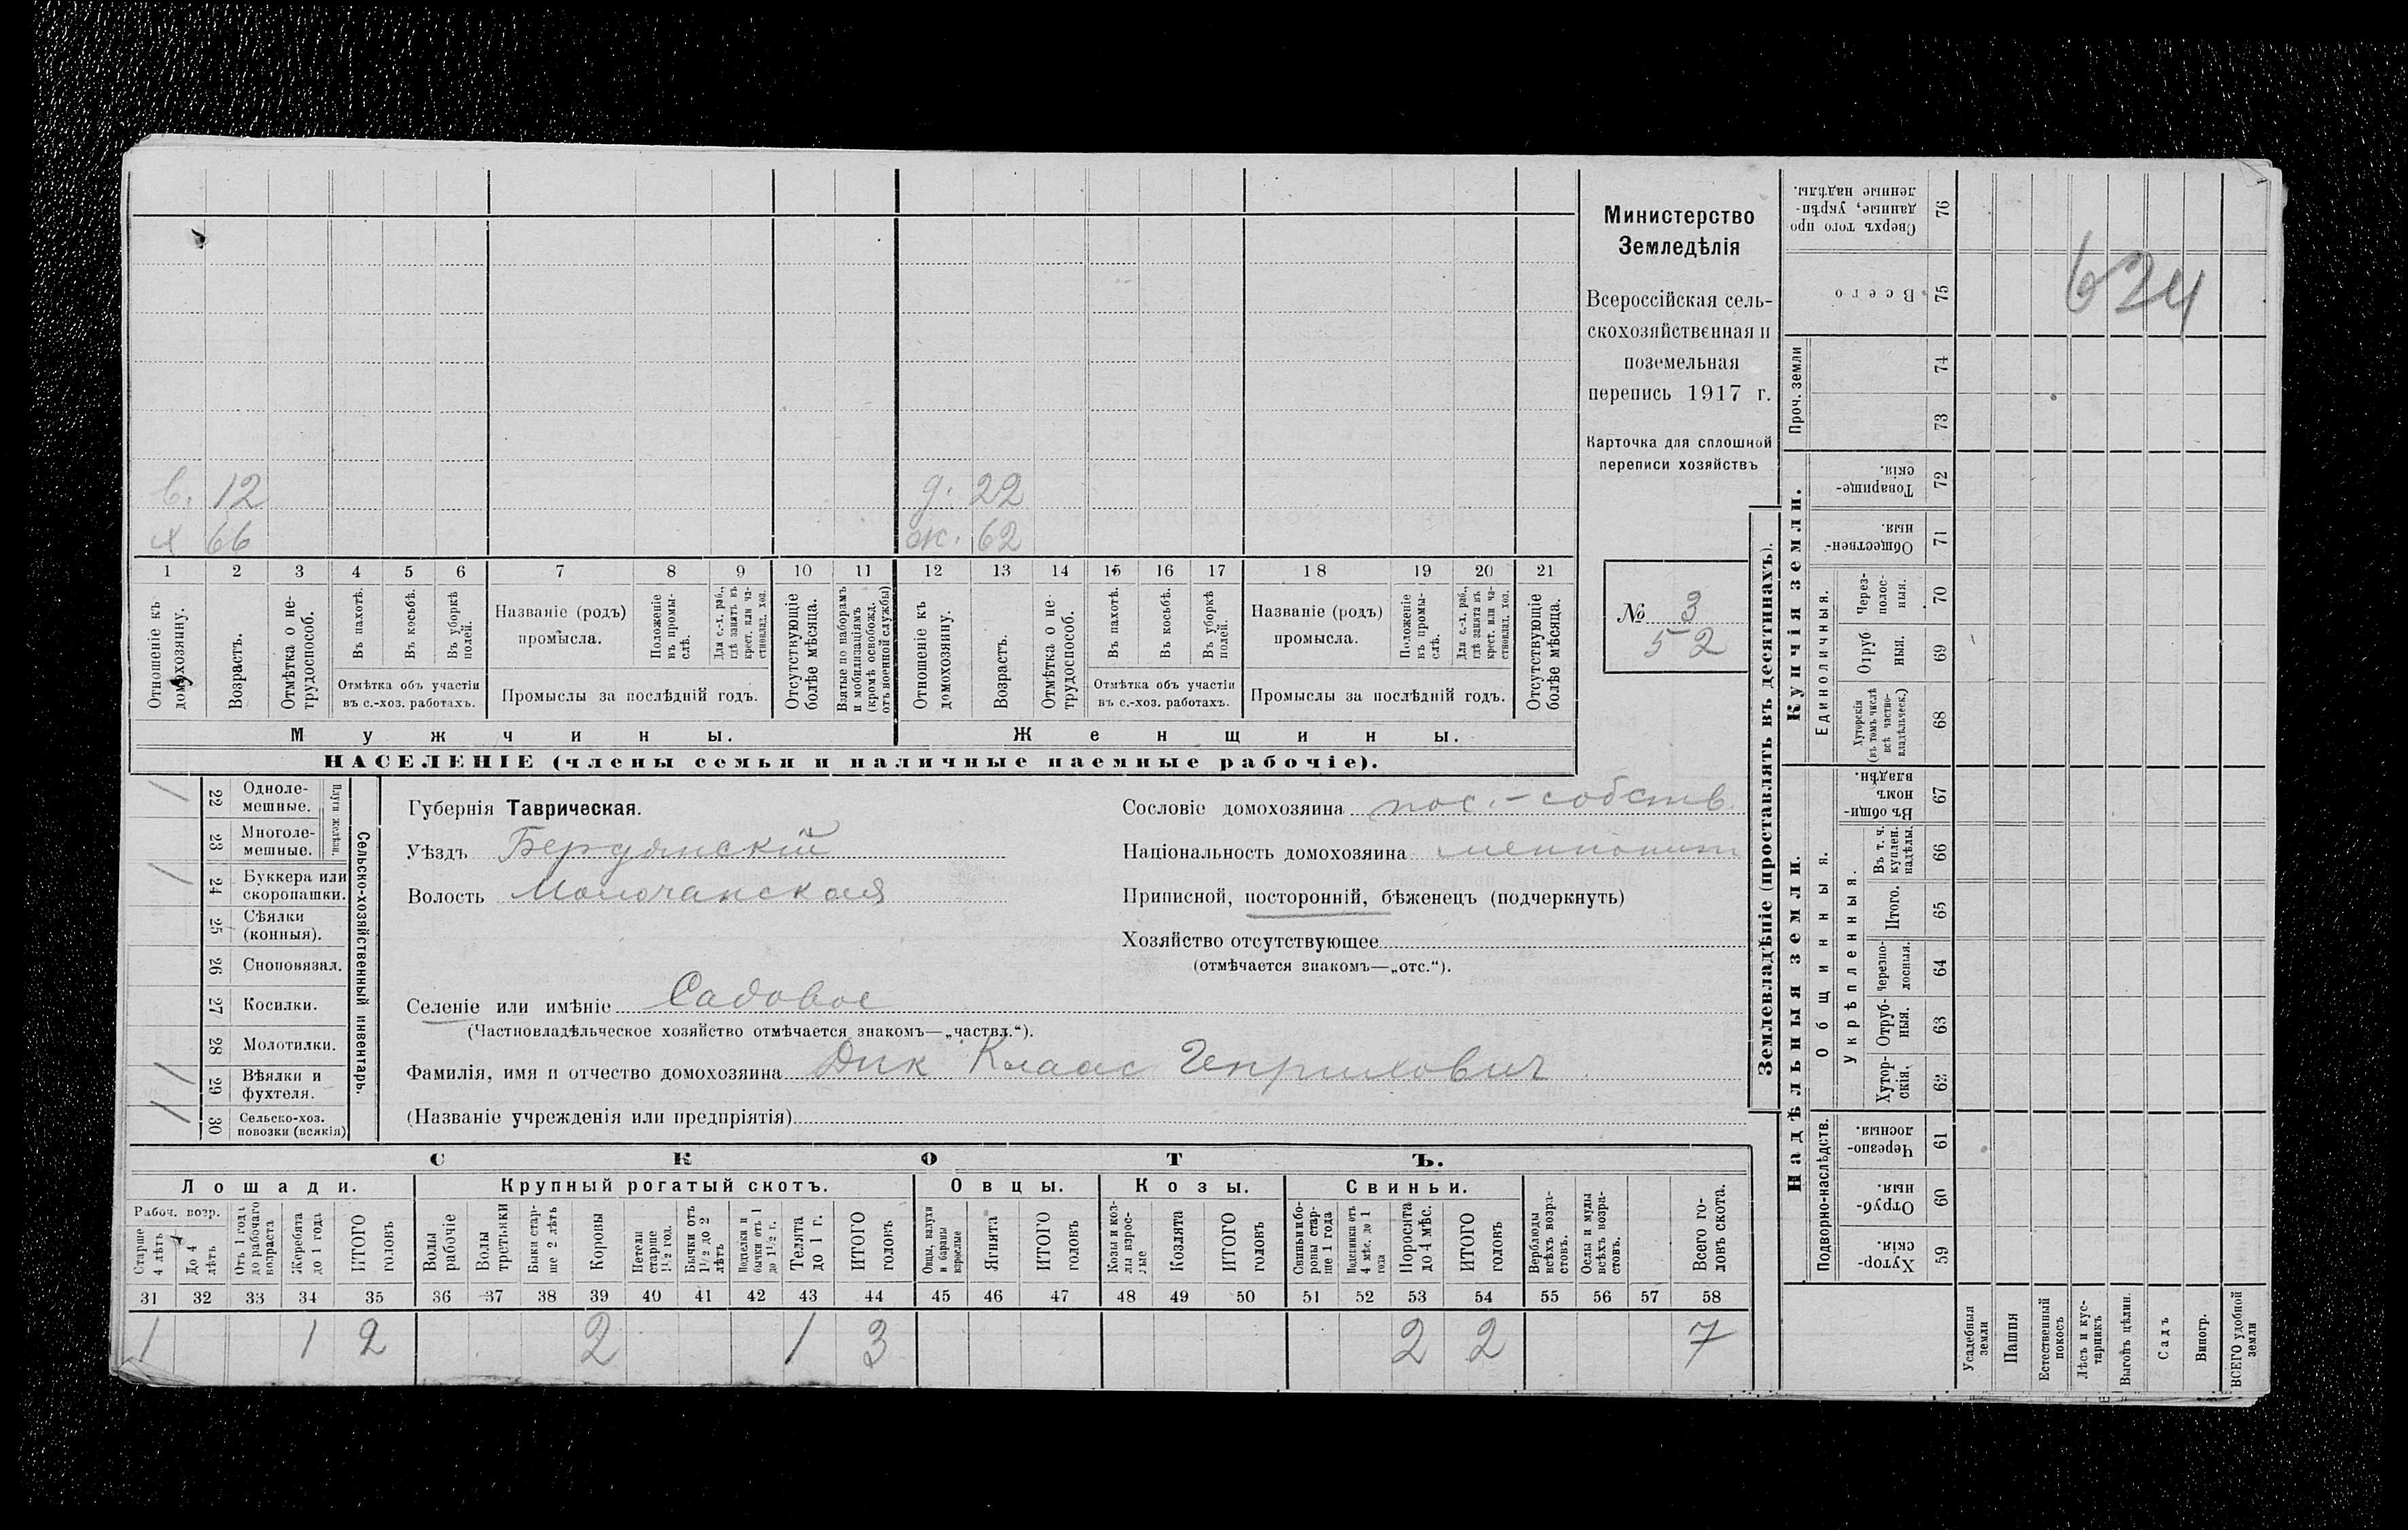 в. 12
д. 22
х 66
ж. 62
1 2 3 4 5 6 7 8 9 10 11 12 13 14 15 16 17 18 19 20 21
Отношеніе къ домохозяину.
Возрастъ.
Отмѣтка о нетрудоспособ.
Въ пахотѣ.
Въ косьбѣ.
Въ уборкѣ полей.
Отмѣтка объ участіи
въ с.-хоз. работахъ.
Названіе (родъ)
промысла.
Положеніе въ промыслѣ.
Для с.-х. раб., гдѣ занятъ въ крест. или частновлад. хоз.
Промыслы за послѣдній годъ.
Отсутствующіе болѣе мѣсяца.
Взятые по наборамъ и мобилизаціямъ (кромѣ освобожд. отъ военной службы)
Отношеніе къ домохозяину.
Возрастъ.
Отмѣтка о нетрудоспособ.
Въ пахотѣ.
Въ косьбѣ.
Въ уборкѣ полей.
Отмѣтка объ участіи
въ с.-хоз. работахъ.
Названіе (родъ)
промысла.
Положеніе въ промыслѣ.
Для с.-х. раб., гдѣ занята въ крест. или частновлад. хоз.
Промыслы за послѣдній годъ.
Отсутствующіе болѣе мѣсяца.
Мужчины.
Женщины.
НАСЕЛЕНІЕ (члены семьи и наличные наемные рабочіе).
Министерство
Земледѣлія
Всероссійская сель-
скохозяйственная и
поземельная
перепись 1917 г.
Карточка для сплошной
переписи хозяйствъ
№ 3
52
/ 22 Одноле-
мешные.
23 Многоле-
мешные.
Плуги желѣзн.
/ 24 Буккера или
скоропашки.
25 Сѣялки
(конныя).
26 Сноповязал.
27 Косилки.
28 Молотилки.
/ 29 Вѣялки и
фухтеля.
// 30 Сельско-хоз.
повозки (всякія)
Сельско-хозяйственный инвентарь.
Губернія Таврическая.
Уѣздъ Бердянскій
Волость Молочанская
Сословіе домохозяина пос.-собств.
Національность домохозяина меннонит
Приписной, посторонній, бѣженецъ (подчеркнуть)
Хозяйство отсутствующее
(отмѣчается знакомъ—„отс.“).
Селеніе или имѣніе Садовое
(Частновладѣльческое хозяйство отмѣчается знакомъ—„частвл.“).
Фамилія, имя и отчество домохозяина Дик Клаас Генрихович
(Названіе учрежденія или предпріятія)
СКОТЪ.
Лошади.
Крупный рогатый скотъ.
Овцы.
Козы.
Свиньи.
Рабоч. возр.
Старше 4 лѣтъ
До 4 лѣтъ
Отъ 1 года до рабочаго возраста
Жеребята до 1 года
ИТОГО головъ
Волы рабочіе
Волы третьяки
Быки старше 2 лѣтъ
Коровы
Нетели старше 1½ года.
Бычки отъ 1½ до 2 лѣтъ
Подтелки и бычки отъ 1 до 1½ г.
Телята до 1 г.
ИТОГО головъ
Овцы, валухи и бараны взрослые
Ягнята
ИТОГО головъ
Козы и козлы взрослые
Козлята
ИТОГО головъ
Свиньи и боровы старше 1 года
Подсвинки отъ 4 мѣс. до 1 года
Поросята до 4 мѣс.
ИТОГО головъ
Верблюды всѣхъ возрастовъ.
Ослы и мулы всѣхъ возрастовъ.
Всего головъ скота.
31 32 33 34 35 36 37 38 39 40 41 42 43 44 45 46 47 48 49 50 51 52 53 54 55 56 57 58
1 1 2 2 1 3 2 2 7
Землевладѣніе (проставлять въ десятинахъ).
Надѣльныя земли.
Купчія земли.
Проч. земли
Сверхъ того проданные, укрѣпленные надѣлы. 76
Всего 75
74
73
Товарищескія. 72
Общественныя. 71
Единоличныя.
Черезполосныя. 70
Отрубныя. 69
Хуторскія (въ томъ числѣ всѣ частновладѣльческ.) 68
Общинныя.
Въ общинномъ владѣн. 67
Укрѣпленныя.
Въ т. ч. куплен. надѣлы. 66
Итого. 65
Черезполосныя. 64
Отрубныя. 63
Хуторскія. 62
Подворно-наслѣдств.
Черезполосныя. 61
Отрубныя. 60
Хуторскія. 59
Усадебныя земли
Пашня
Естественный покосъ
Лѣсъ и кустарникъ
Выгонъ цѣлин.
Садъ
Виногр.
ВСЕГО удобной земли
624